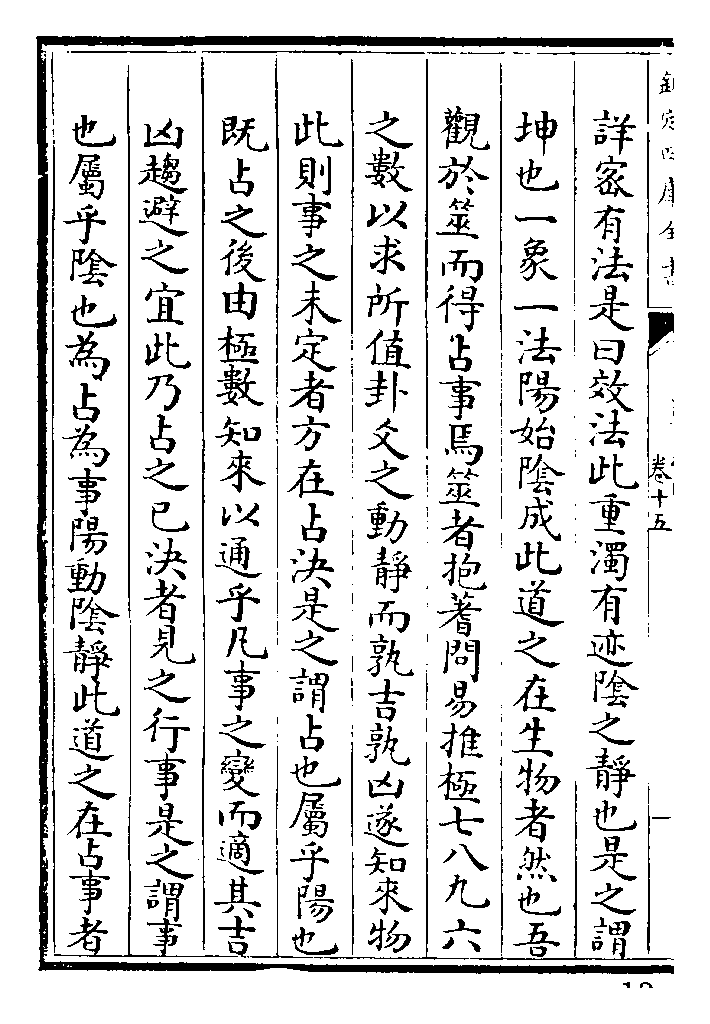 欽定四庫全書
卷十五
詳宻有法是曰效法此重濁有迹陰之静也是之謂
坤也一象一法陽始陰成此道之在生物者然也吾
觀於筮而得占事焉筮者抱蓍問易推極七八九六
之數以求所值卦爻之動静而孰吉孰凶遂知來物
此則事之未定者方在占決是之謂占也屬乎陽也
既占之後由極數知來以通乎凡事之變而適其吉
凶趨避之宜此乃占之已決者見之行事是之謂事
也屬乎陰也為占為事陽動陰静此道之在占事者